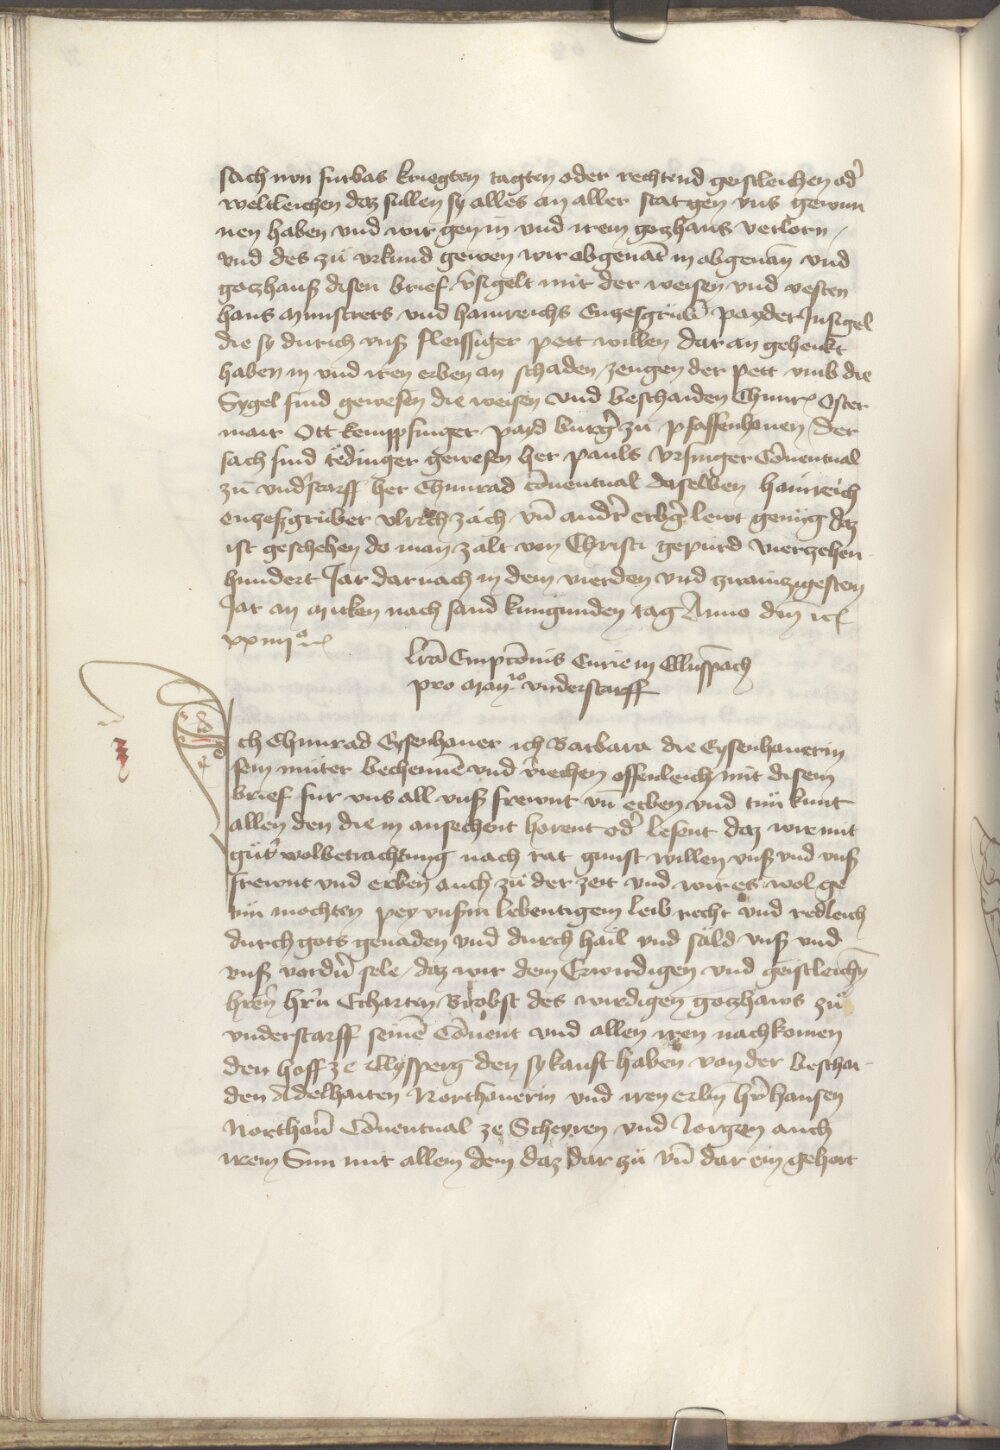 sach nun furbas kriegten tagten oder rechtend geistleichen od̄
weltleichen daz sullen sy alles an aller stat gen vns gewun
nen haben vnd wir gen in vnd irem gozhaus verlorn /
vnd des zů vrkund gewen wir obgenāt in obgenañ vnd
gozhauß disen brief v̄sigelt mit der weisen vnd vesten
hans munstrers vnd hainreichs payder Insigel
die sy durich vnß fleissiger pett willen dar an gehenkt
haben in vnd iren erben an schaden zeugen der pett vmb die
Sygel sind gewesen die weisen vnd beschaiden Chunr Oster
mair Ott kemppfinger payd burḡ zu pfaffenhouen / der
sach sind tedinger gewesen her pauls vrsinger Cōuentual
zů vnd̄starff her Chunrad cōuentual daselben hainreich
onzeßgruber vlrich zäch vn̄ and̄ erbḡ lewt genůg daz
ist geschehen do man zalt von Christi gepurd vierzehen
hundert Jar darnach in dem vierden vnd zwainzigesten
Jar an micken nach sand kungunden tag Anno dm̄
xxiiijᵒ
lrā Empcōnis Curie in
pro vnderstarff
Ich Chunrad Eysenhauer ich Barbara die Eysenhauerin
sein můter bechennē vnd v̄iechen offenleich mit disem
brief fur vns all vnß frewnt vn̄ erben vnd tun kunt
allen den die in ansechent horent od̄ lesent daz wir mit
gůt̄ wolbetrachtung nach rat gunst willen vnß vnd vnß
frewnt vnd erben auch zů der zeit vnd wir es wol ge
tůn mochten pey vnßm lebentigem leib recht vnd redleich
durch gots genaden vnd durch hail vnd säld vnß vnd
vnß vord̄n sele / daz wir dem Erwirdigen vnd geistleichn̄
hrēn hr̄n Ekharten Brobst des wirdigen gozhaws zů
vnderstarff seinē Cōuent vnd allen iren nachkomen
den hoff ze den sy kauft haben von der beschai
den Adelhaiten Northouerin vnd iren erbn̄ hr̄ hansen
Northou̅ Cōuentual ze Scheyren vnd Jorgen auch
irem Sun mit allem dem daz dar zů vn̄ dar ein gehort